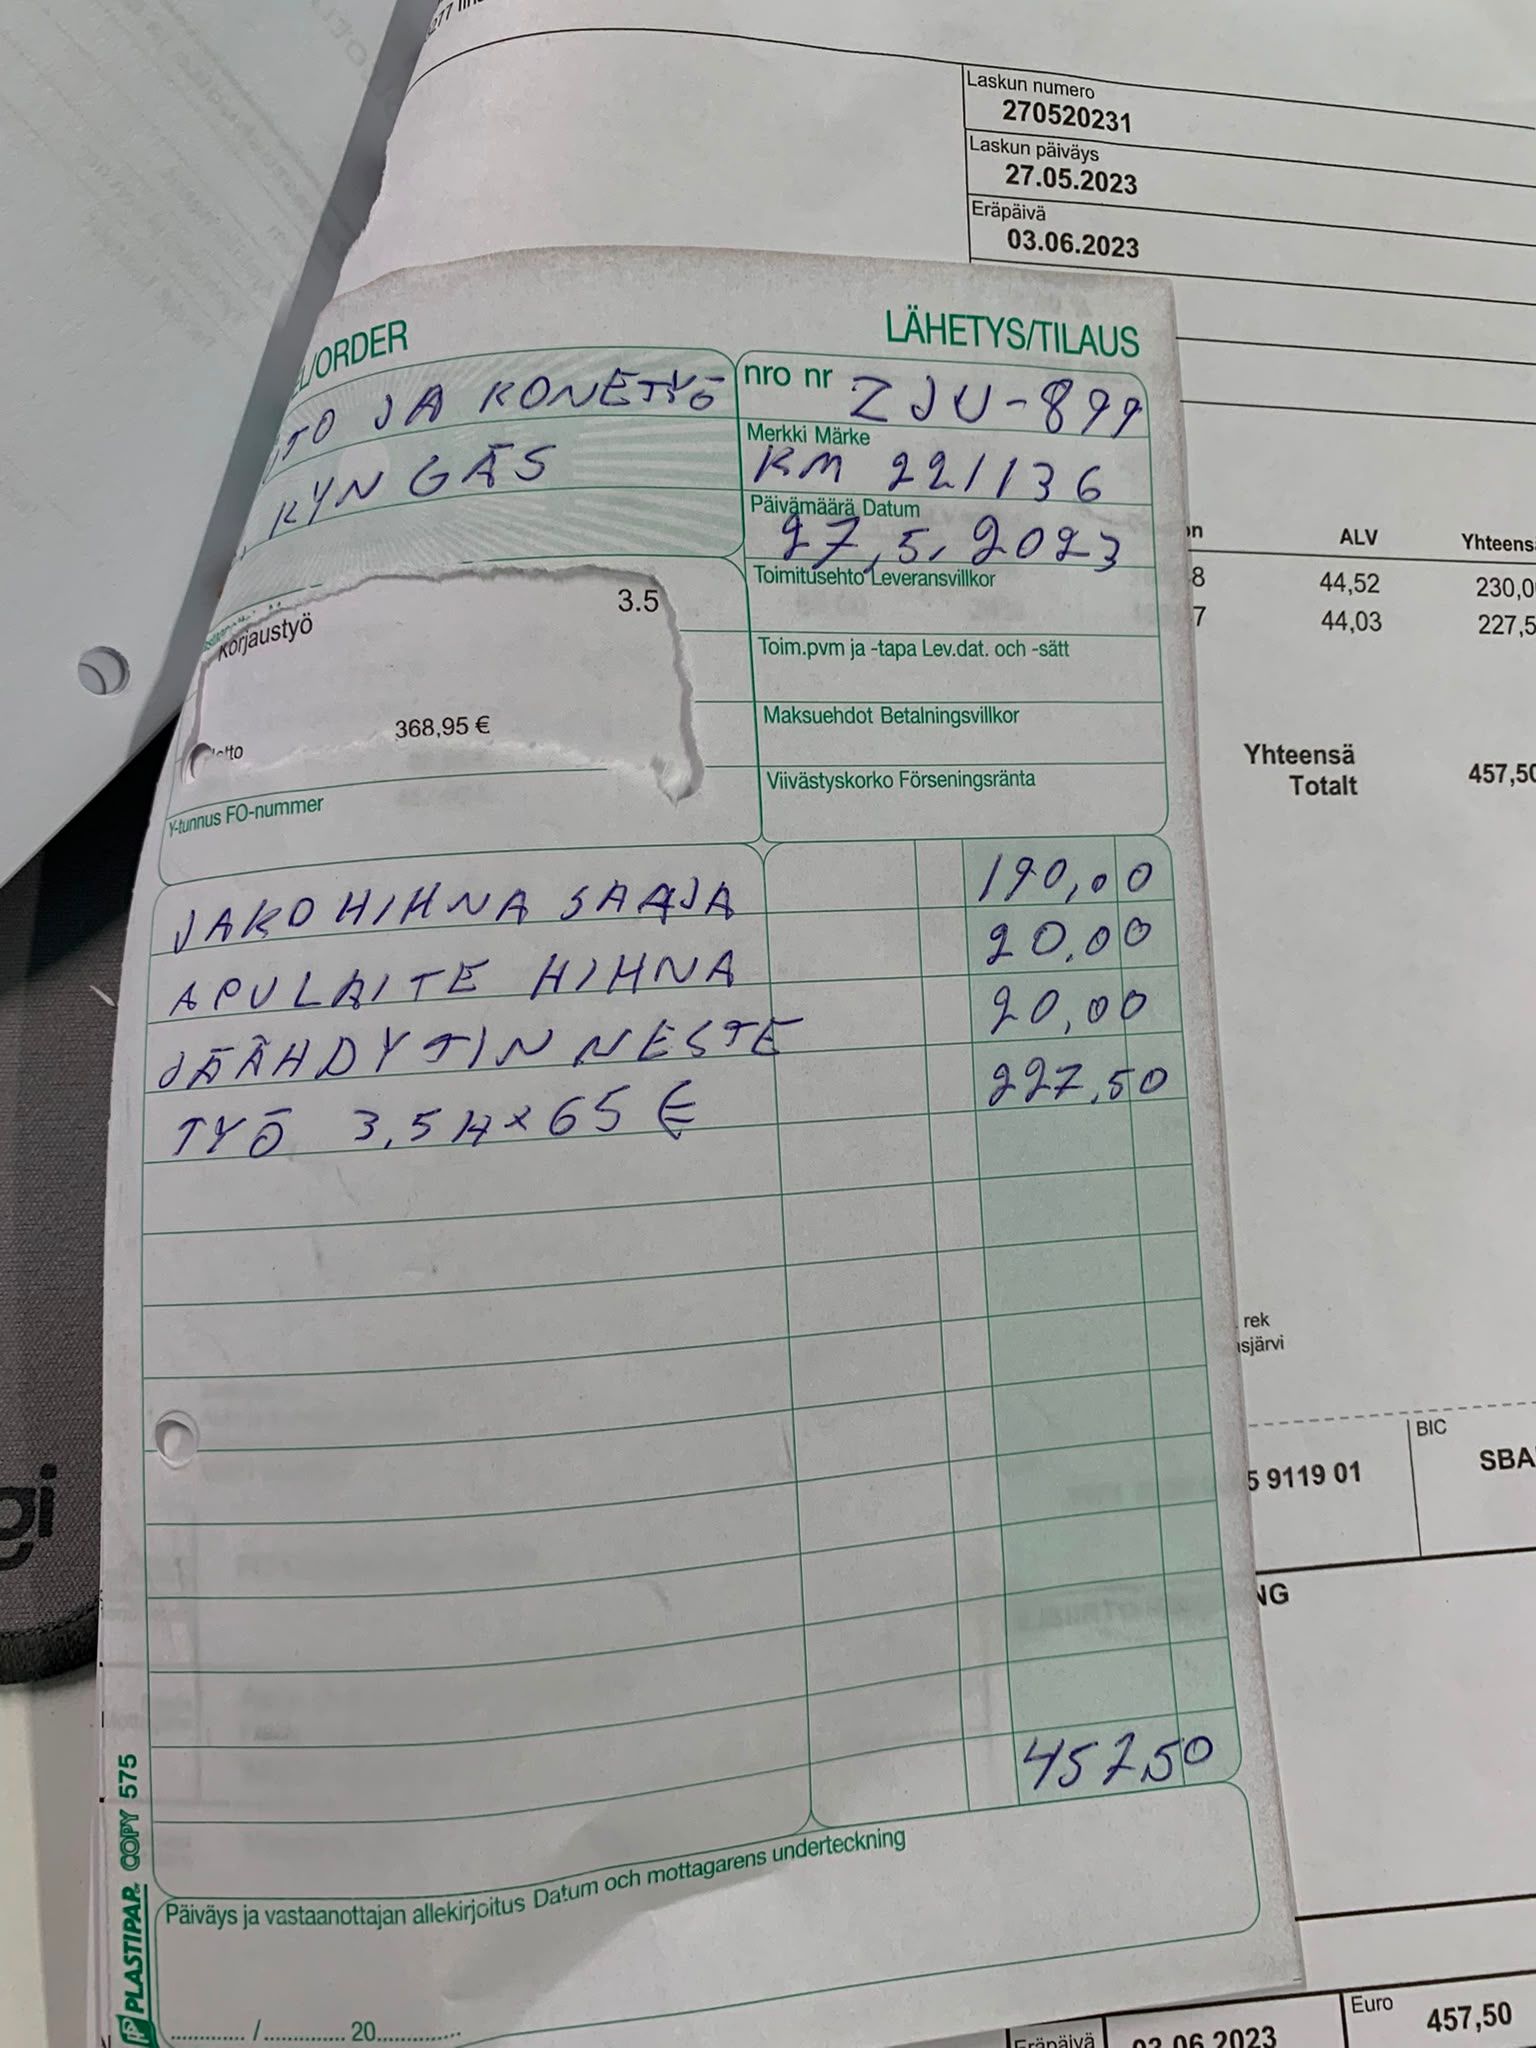 Laskun numero
270520231
Laskun päiväys
27.05.2023
Eräpäivä
03.06.2023
/ORDER
LÄHETYS/TILAUS
TO JA KONETYÖ
KYNGÄS
nro nr ZJU-899
Merkki Märke
KM 221136
Päivämäärä Datum
27.5.2023
Toimitusehto Leveransvillkor
Toim.pvm ja -tapa Lev.dat. och -sätt
Maksuehdot Betalningsvillkor
Viivästyskorko Förseningsränta
Korjaustyö 3.5
368,95 €
Y-tunnus FO-nummer
ALV Yhteens
8 44,52 230,0
7 44,03 227,5
Yhteensä
Totalt 457,50
JAKOHIHNA SAAJA 190,00
APULAITE HIHNA 20,00
JÄÄHDYTIN NESTE 20,00
TYÖ 3,5 H x 65 € 227,50
457,50
rek
sjärvi
BIC
5 9119 01
SBA
NG
Päiväys ja vastaanottajan allekirjoitus Datum och mottagarens underteckning
............ / ............. 20.............
PLASTIPAP COPY 575
gi
Eräpäivä
03.06.2023
Euro
457,50